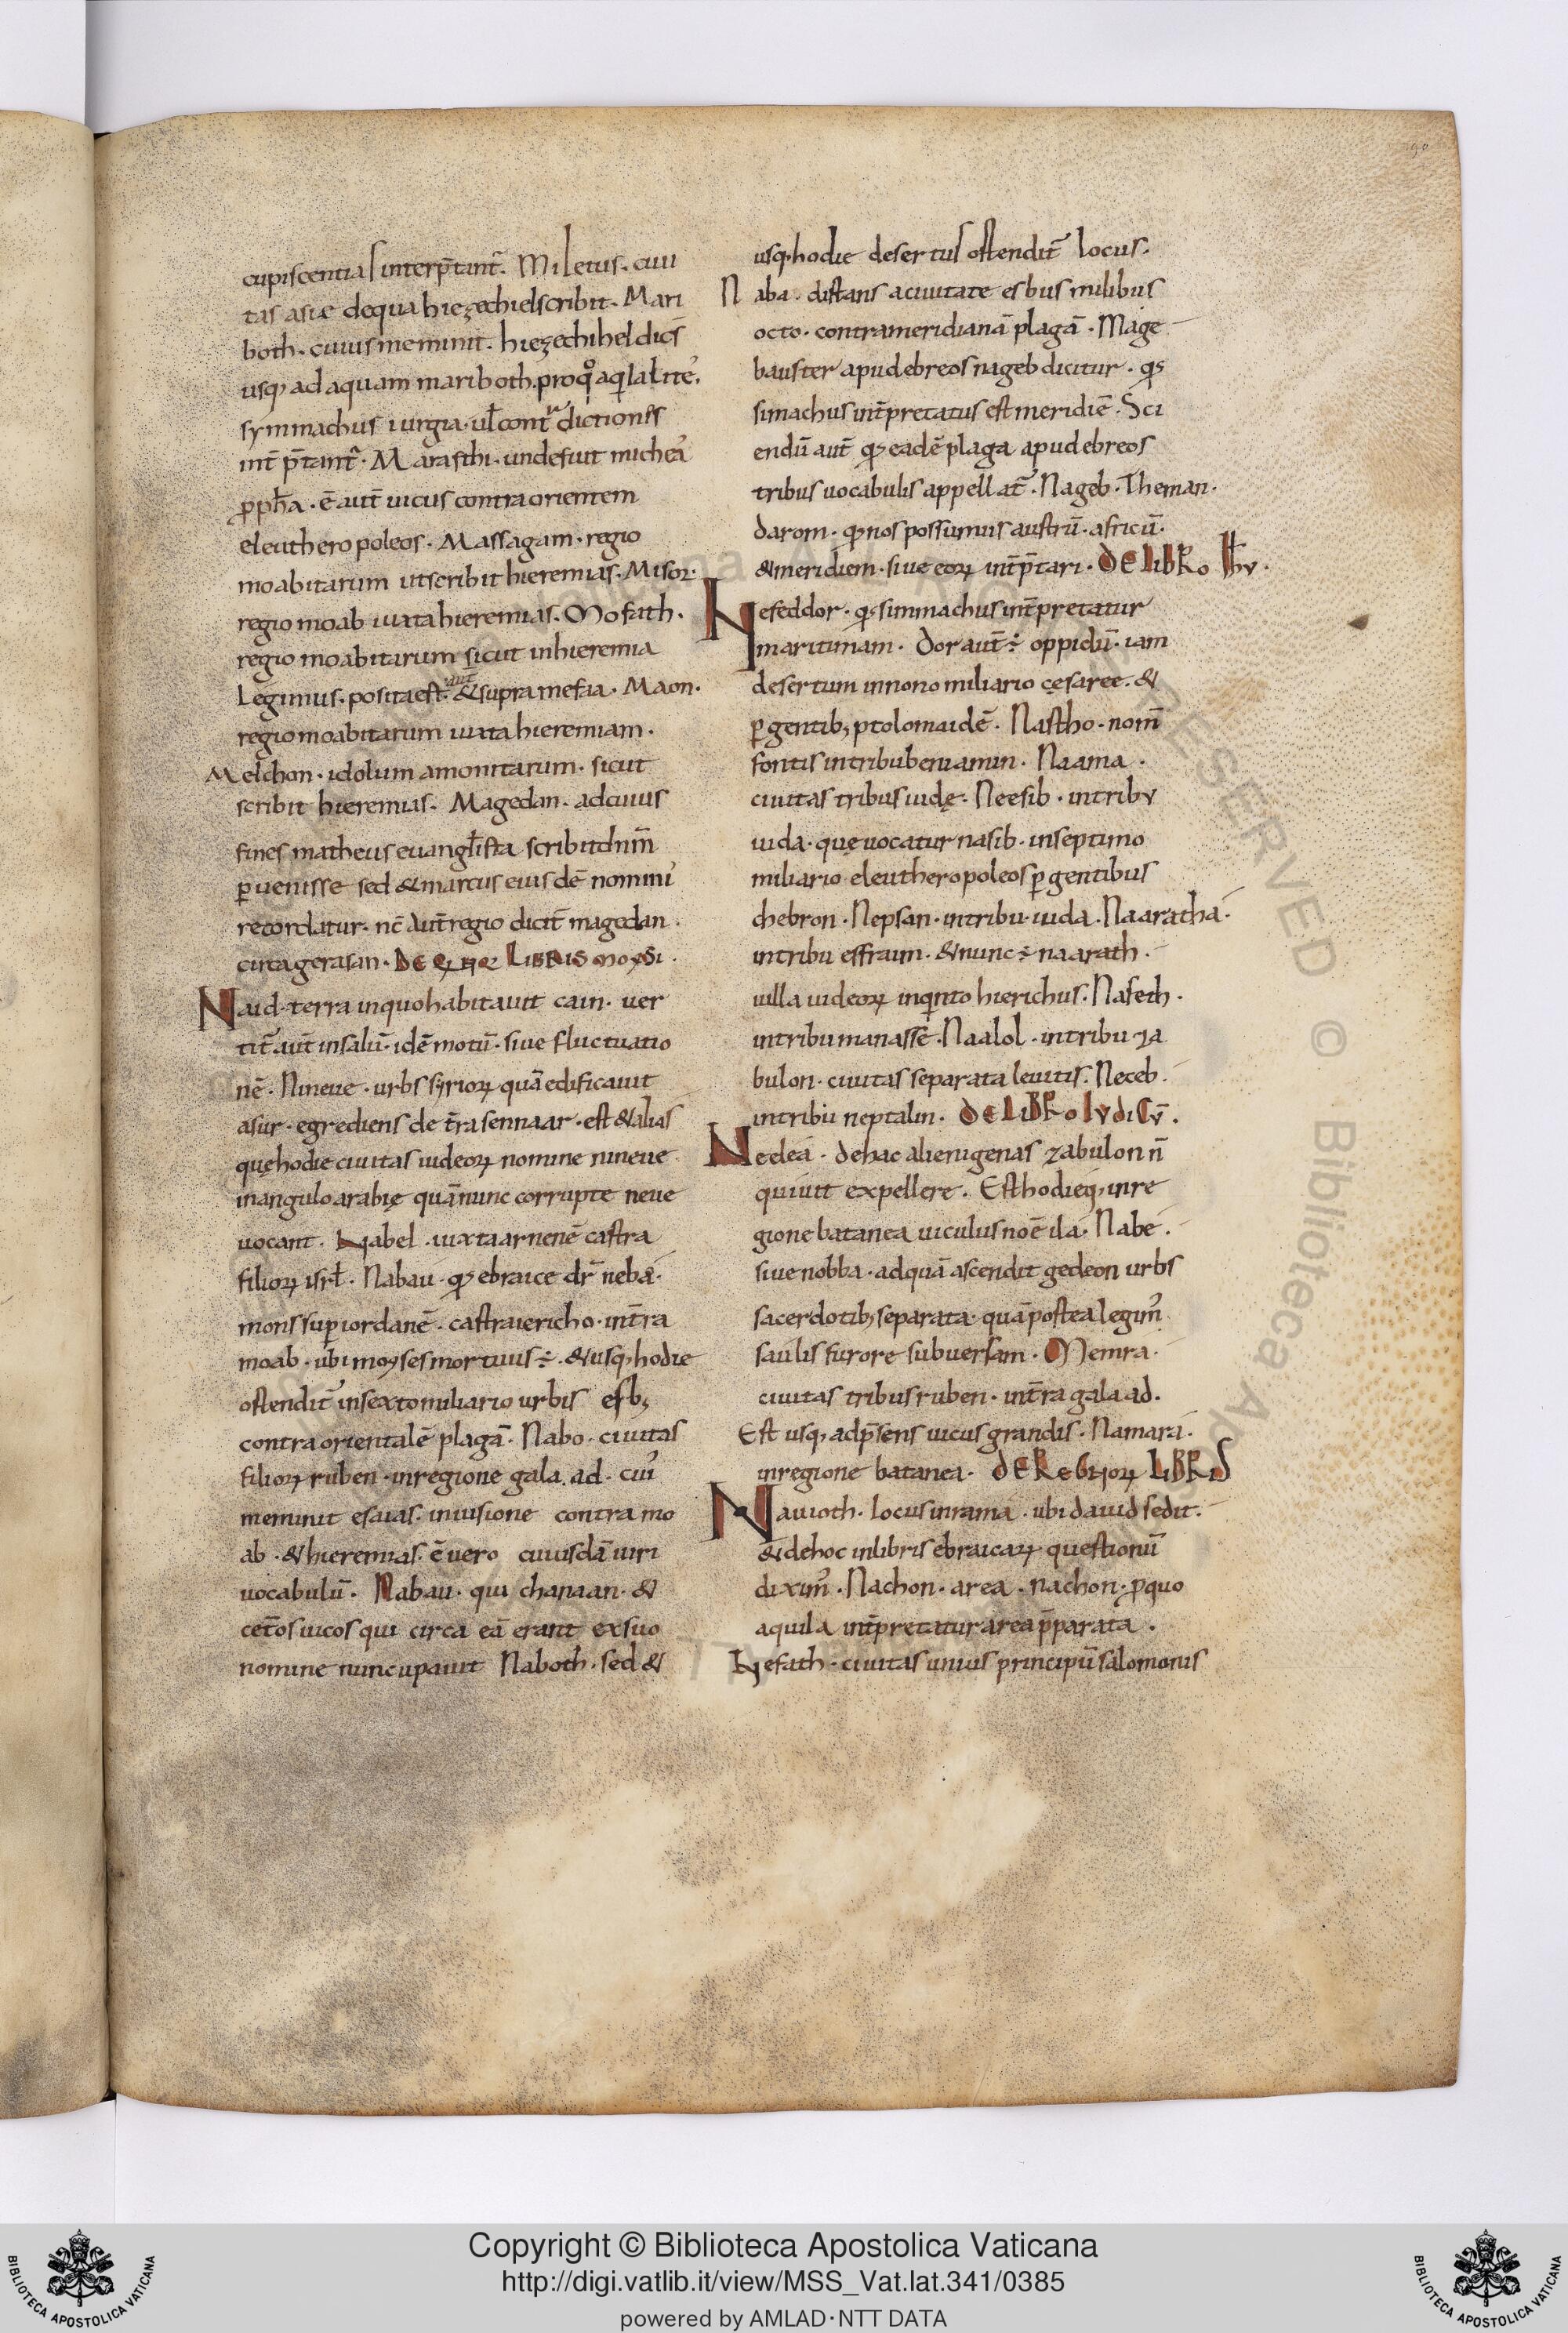 cupiscentias interp̄tant᷑. Miletus. ciui
tas asiæ dequa hiezechiel scribit. Mari
both. cuius meminit. hiezechihel dics̄
usq; ad aquam mariboth. pro q̊ aq̇la lite᷒.
symmachus iurgia. ul̄ contradictiones
int̄p̄tant᷑. Marasthi. unde fuit michea᷒
p̄ph̄a. ē aut̄ uicus contra orientem
eleutheropoleos. Massagam. regio
moabitarum ut scribit hieremias. Misor.
regio moab iuxta hieremias. Mofath.
regio moabitarum sicut inhieremia
legimus. posita est. aut̄ & supra mefaa. Maon.
regio moabitarum iuxta hieremiam.
Melchon. idolum amonitarum. sicut
scribit hieremias. Magedan. ad cuius
fines matheus euangl̄ista scribit dnm̄
ꝑuenisse sed & marcus eiusdē nomini᷒
recordatur. nc̄ aut̄ regio dicit᷑ magedan
circa gerasan. De qꝫ LIBRIS moysi.
Naid. terra inquo habitauit cain. uer
tit᷑ aut̄ insalū. idē motū. siue fluctuatio
nē. Nineue. urbs syrioꝝ quā edificauit
asur. egrediens de t̄ra sennaar. est & alias
quę hodie ciuitas iudeoꝝ nomine nineue
inangulo arabię quā nunc corrupte neue
uocant. Nabel. iuxta arnenē castra
filioꝝ isrl̄. Nabau. qđ ebraice dr̄ neba.
mons suꝑ iordanē. castra iericho. int̄ra
moab. ubi moyses mortuus ÷. & usq; hodie
ostendit᷑ insexto miliario urbis esb;
contra orientalē plagā. Nabo. ciuitas
filioꝝ ruben. inregione galaad. cui᷒
meminit esaias. inuisione contra mo
ab. & hieremias. ē uero cuiusdā uiri
uocabulū. Nabau. qui chanaan. &
cet̄os uicos qui circa eā erant exsuo
nomine nuncupauit Naboth. sed &
usq; hodie desertus ostendit᷑ locus.
Naba. distans aciuitate esbus milibus
octo. contra meridianā plagā. Mage
bauster apud ebreos nageb dicitur. qđ
simachus int̄pretatus est meridiē. Sci
endū aut̄ qđ eadē plaga apud ebreos
tribus uocabulis appellat᷑. Nageb. Theman.
darom. qđ nos possumus austrū. africū.
& meridiem. siue eoꝝ int̄p̄tari. DE LIBRO Ih̄v.
Nefeddor. qđ simmachus int̄pretatur
maritimam. Dor aut̄ ÷ oppidū. iam
desertum innono miliario cęsaree. &
ꝑgentib; ptolomaidē. Nastho. nom̄
fontis intribu beniamin. Naama.
ciuitas tribus iudę. Neesib. intribv
iuda. quę uocatur nasib. inseptimo
miliario eleutheropoleos ꝑgentibus
chebron. Nepsan. intribu. iuda. Naaratha.
intribu effraim. & nunc ÷ naarath.
uilla iudeoꝝ inqⁱnto hierichus. Nafeth.
intribu manasse. Naalol. intribu za
bulon. ciuitas separata leuitis. Neceb.
intribu neptalin. DE LIBRO IVDICV̄.
Neelea. de hac alienigenas zabulon n̄
quiuit expellere. Est hodieq; inre
gione batanea uiculus noē ila. Nabe.
siue nobba. ad quā ascendit gedeon urbs
sacerdotib; separata. quā postea legim᷒
saulis furore subuersam. Nemra.
ciuitas tribus ruben. int̄ra galaad.
Est usq; adp̄sens uicus grandis. Namara.
inregione batanea. DE REGNOꝝ LIBRIS
Nauioth. locus inrama. ubi dauid sedit.
& de hoc inlibris ebraicaꝝ questionū
dixim᷒. Nachon. area. nachon. ꝓ quo
aquila int̄pretatur area p̄parata.
Nefath. ciuitas unius principū salomonis
Copyright © Biblioteca Apostolica Vaticana
http://digi.vatlib.it/view/MSS_Vat.lat.341/0385
powered by AMLAD · NTT DATA
BIBLIOTECA APOSTOLICA VATICANA
BIBLIOTECA APOSTOLICA VATICANA